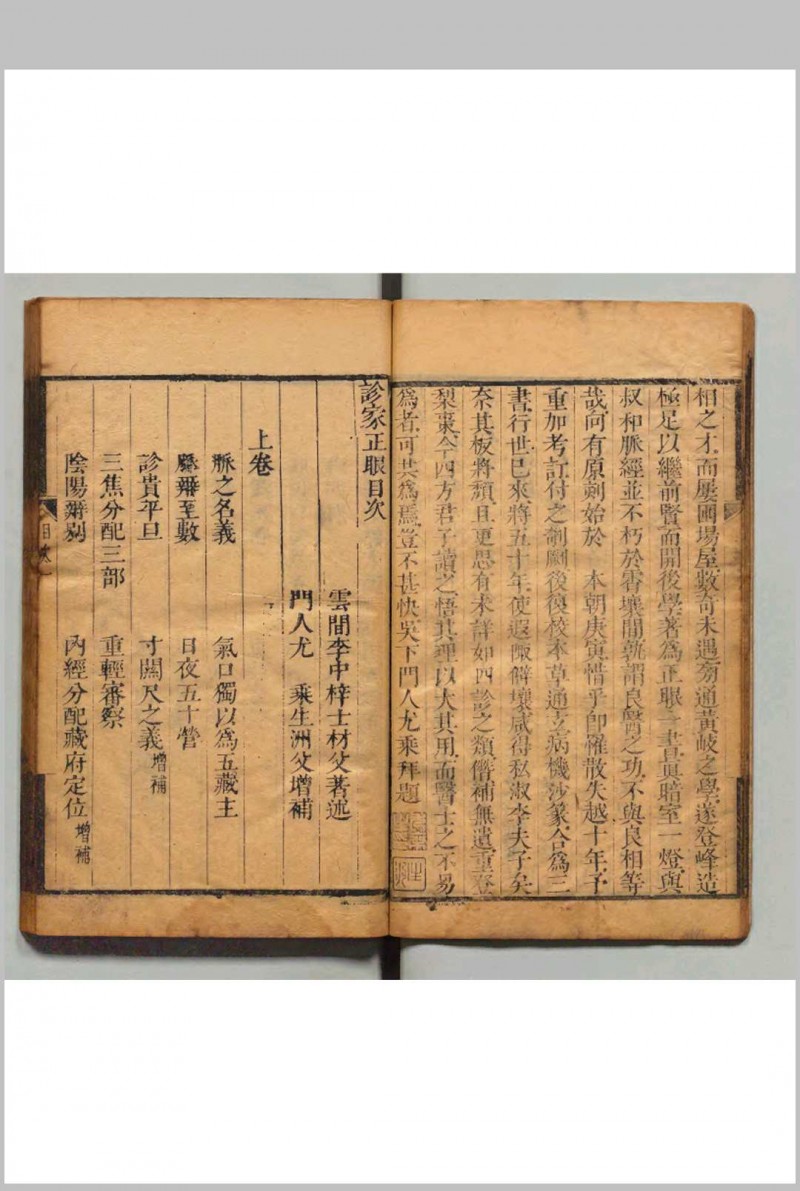 相之才而屢困場屋數奇未遇旁通黃岐之學遂登峰造
極足以繼前賢而開後學著爲正眼一書真暗室一燈與
叔和脈經並不朽於霄壤間孰謂良醫之功不與良相等
哉向有原刻始於　本朝庚寅惜乎卽罹散失越十年予
重加考訂付之剞劂後復校本草通玄病機沙篆合爲三
書行世已來將五十年使遐陬僻壤咸得私淑李夫子矣
奈其板將頹且更思有未詳如四診之類僭補無遺重登
梨棗令四方君子讀之悟其理以大其用而醫士之不易
爲者可共爲焉豈不甚快吳下門人尤乘拜題
診家正眼目次
雲間李中梓士材父著述
門人尤　乘生洲父增補
上卷
脈之名義　氣口獨以爲五藏主
脈辨至數　日夜五十營
診貴平旦　寸關尺之義增補
三焦分配三部　重輕審察
陰陽辨別　內經分配藏府定位增補
目次